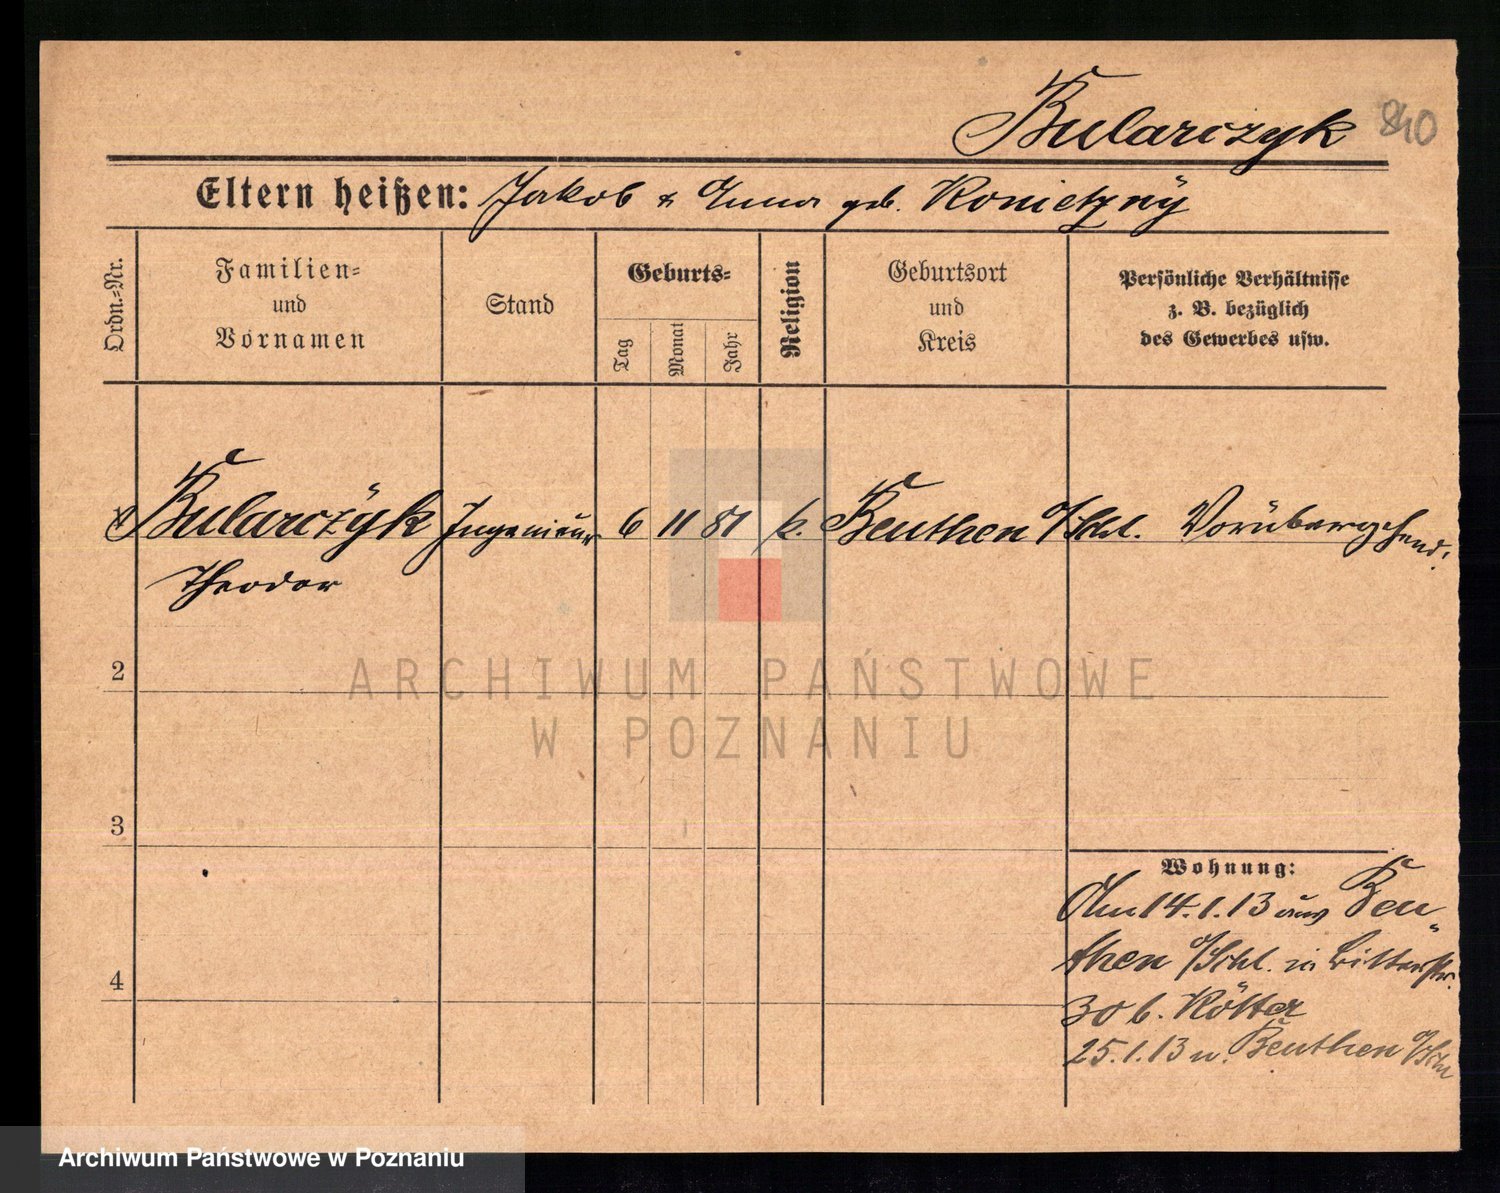 Bularczyk 840
Eltern heißen: Jakob & Anna geb. Konietzny
Ordn.-Nr.
Familien- und Vornamen
Stand
Geburts-
Tag
Monat
Jahr
Religion
Geburtsort und Kreis
Persönliche Verhältnisse
z. B. bezüglich
des Gewerbes usw.
1 Bularczyk Ingenieur 6 11 81 k. Beuthen O/Schl. Vorübergehend.
Theodor
2
ARCHIWUM PAŃSTWOWE
W POZNANIU
3
Wohnung:
Am 14.1.13 aus Beu-
then O/Schl. in Ritterstr.
4
30 b. Rötter
25.1.13 n. Beuthen O/Schl
Archiwum Państwowe w Poznaniu